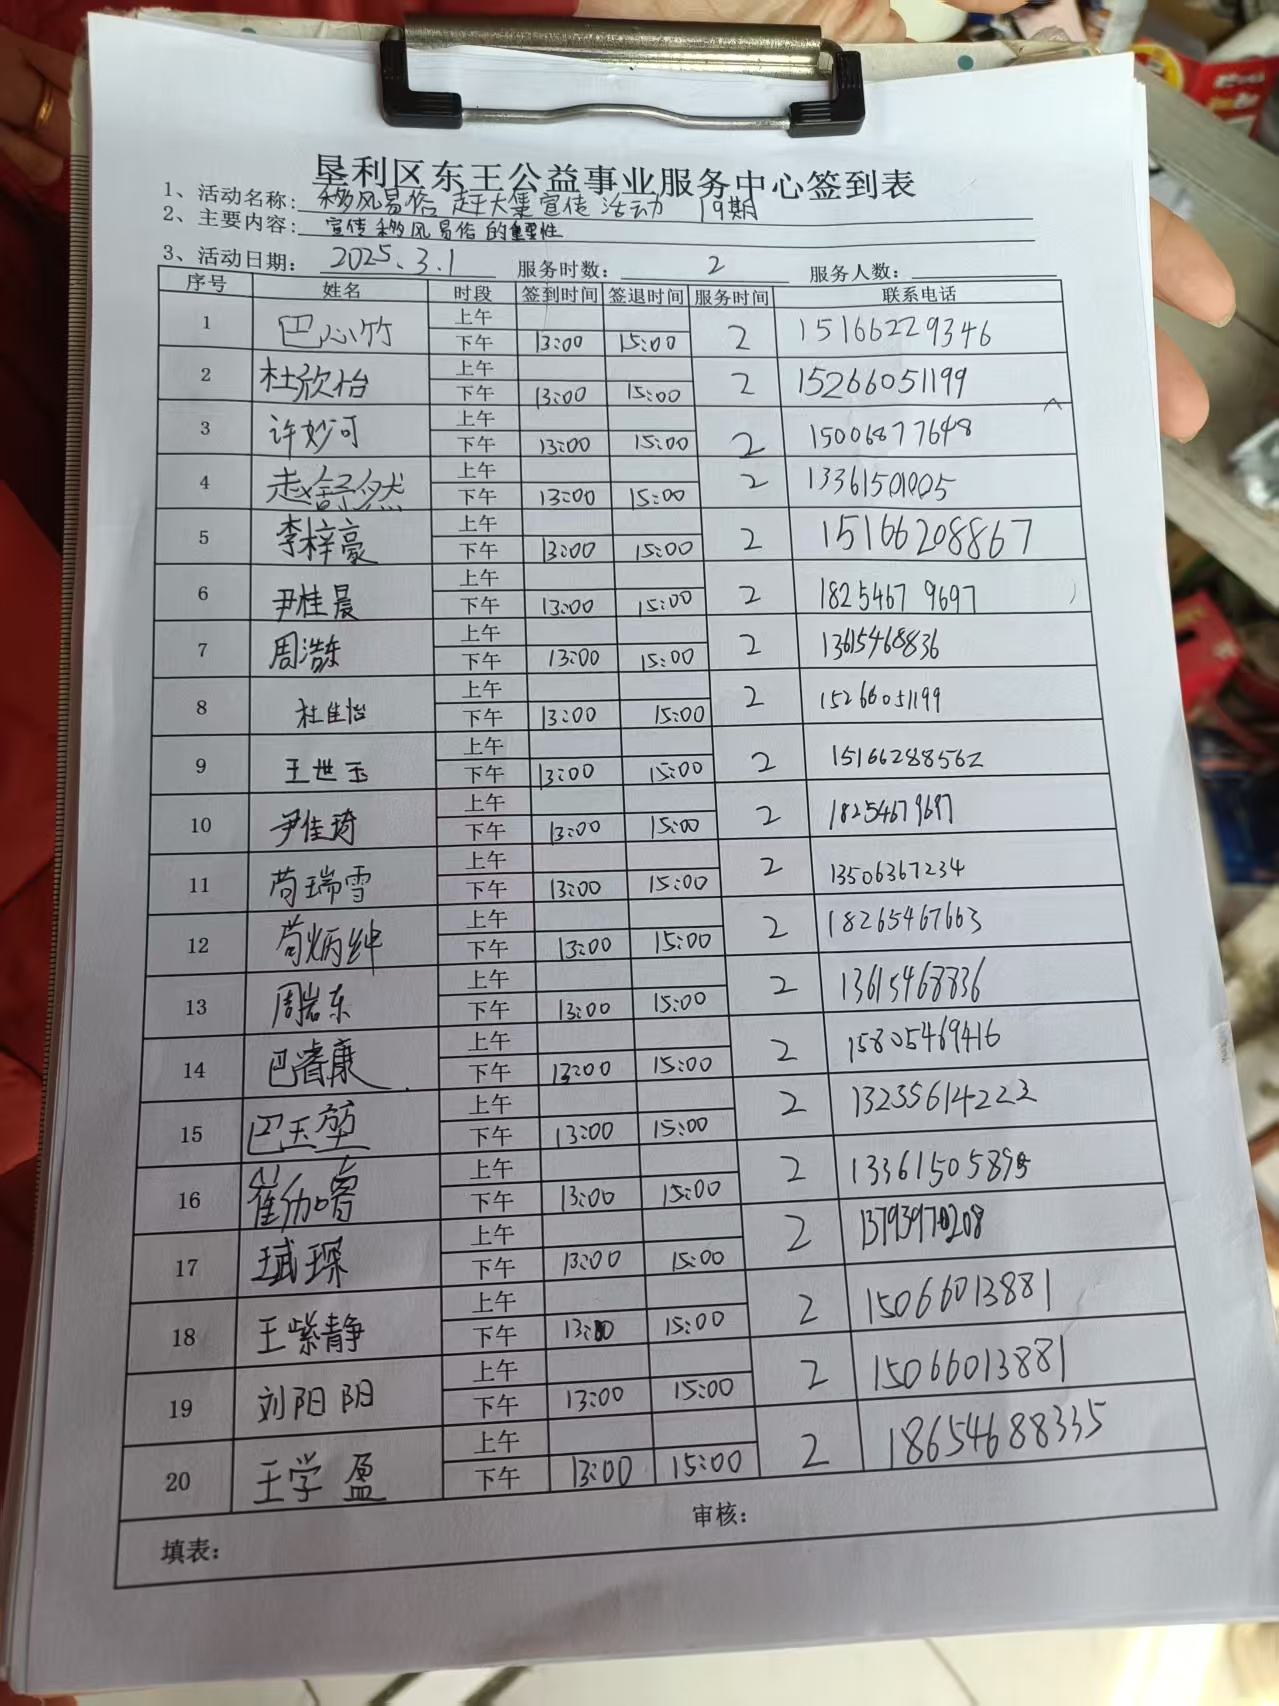 垦利区东王公益事业服务中心签到表
1、活动名称: 移风易俗 赶大集宣传活动 19期
2、主要内容: 宣传移风易俗的重要性
3、活动日期: 2025.3.1 服务时数: 2 服务人数:
序号 姓名 时段 签到时间 签退时间 服务时间 联系电话
1 巴心竹 上午 2 15166229346
下午 13:00 15:00
2 杜欣怡 上午 2 15266051199
下午 13:00 15:00
3 许妙可 上午 2 15006877648
下午 13:00 15:00
4 赵舒然 上午 2 13361501005
下午 13:00 15:00
5 李梓豪 上午 2 15166208867
下午 13:00 15:00
6 尹桂晨 上午 2 18254679697
下午 13:00 15:00
7 周浩东 上午 2 13615468836
下午 13:00 15:00
8 杜佳怡 上午 2 15266051199
下午 13:00 15:00
9 王世玉 上午 2 15166288562
下午 13:00 15:00
10 尹佳琦 上午 2 18254679697
下午 13:00 15:00
11 苟瑞雪 上午 2 13506367234
下午 13:00 15:00
12 苟炳绅 上午 2 18265467663
下午 13:00 15:00
13 周岩东 上午 2 13615468836
下午 13:00 15:00
14 巴睿康 上午 2 15805469416
下午 13:00 15:00
15 巴玉堃 上午 2 13235614222
下午 13:00 15:00
16 崔珈睿 上午 2 13361505895
下午 13:00 15:00
17 上午 2 13793970208
下午 13:00 15:00
18 王紫静 上午 2 15066013881
下午 13:00 15:00
19 刘阳阳 上午 2 15066013881
下午 13:00 15:00
20 王学盈 上午 2 18654688335
下午 13:00 15:00
填表: 审核: